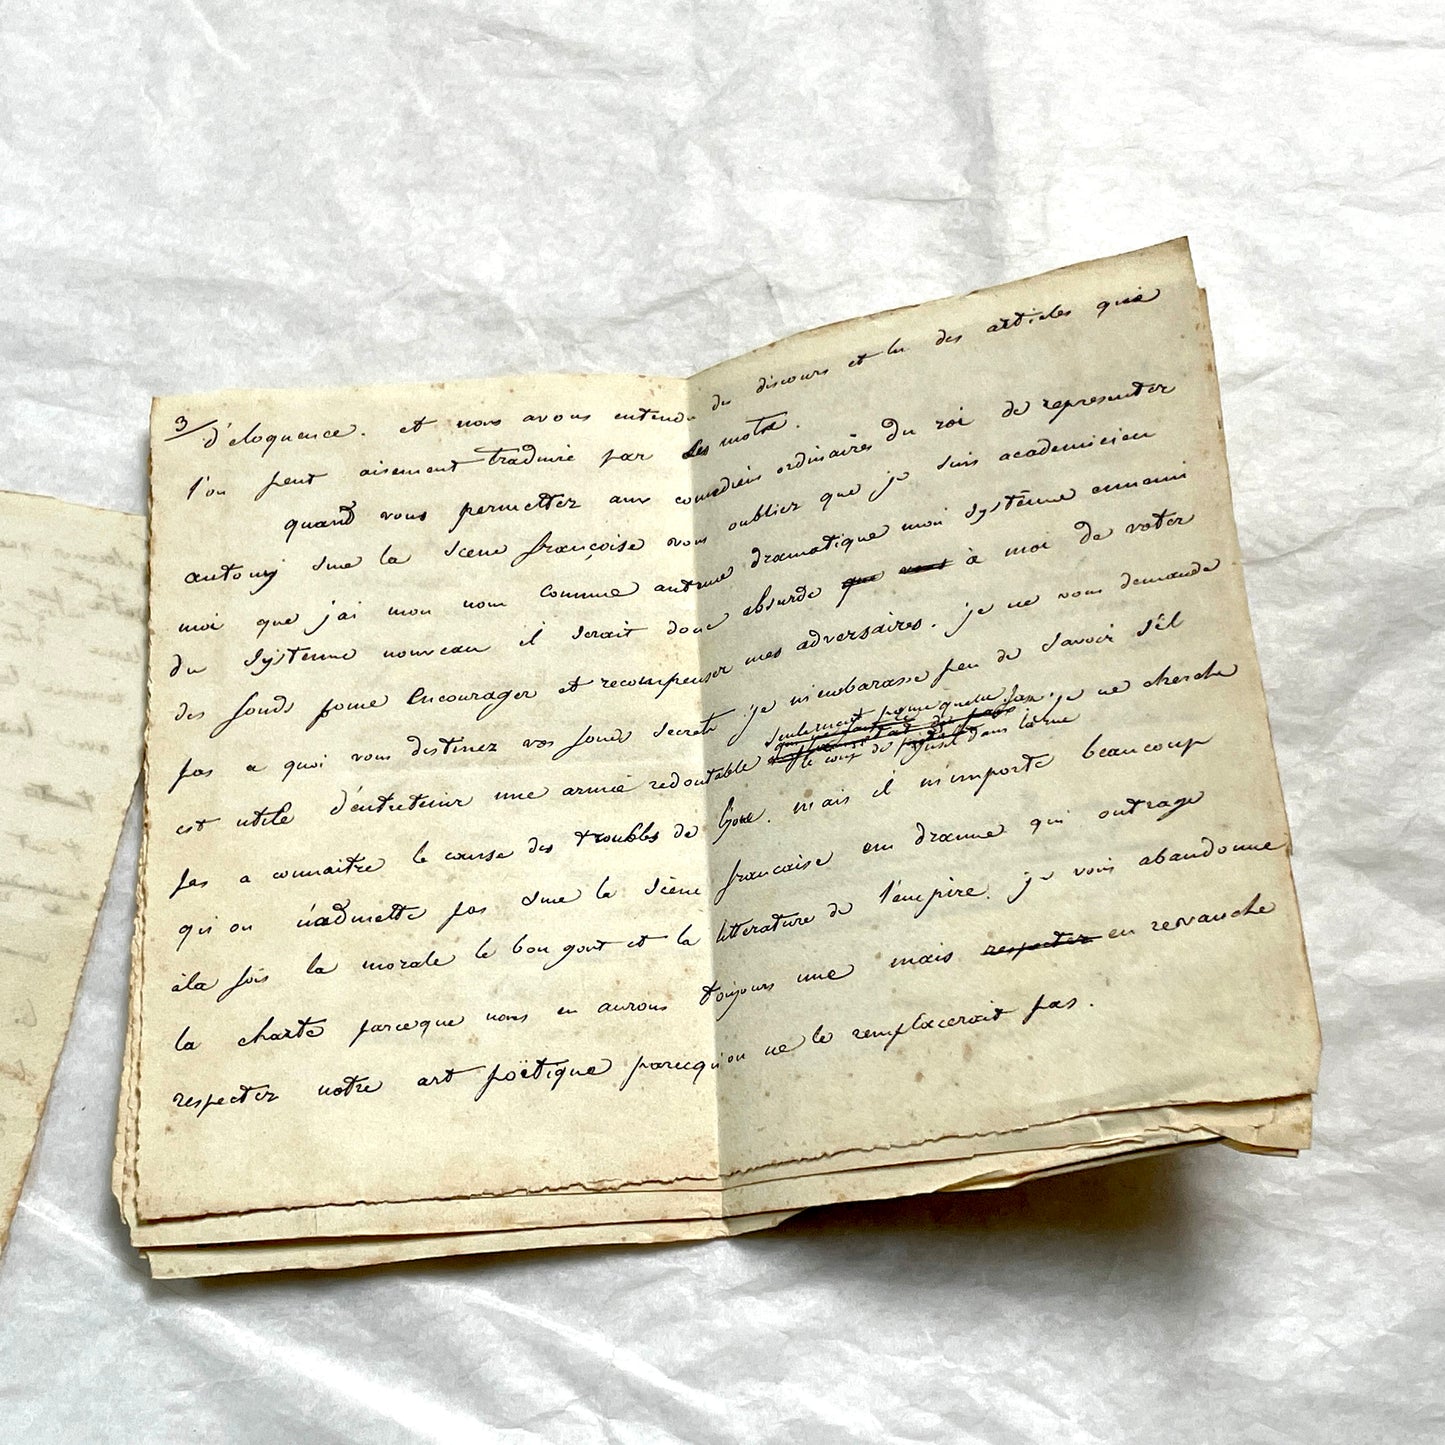 3/ d'eloquence. et nous avons entendu des discours et lu des articles que
l'on peut aisement traduire par des mots.
quand vous permettez aux comediens ordinaires du roi de representer
antony sur la scene françoise vous oubliez que je suis academicien
moi que j'ai mon nom comme auteur dramatique mon systême ennemi
du systeme nouveau il serait donc absurde que vous à moi de voter
des fonds pour encourager et recompenser mes adversaires. je ne vous demande
pas a quoi vous destinez vos fonds secrets je m'embarasse peu de savoir s'il
est utile d'entretenir une armée redoutable
seulement pour quelque
le coup de fusil dans la rue
je ne cherche
pas a connaitre le cause des troubles de lyon. mais il m'importe beaucoup
qu'on n'admette pas sur la scène francaise un drame qui outrage
àla fois la morale le bon gout et la litterature de l'empire. je vous abandonne
la charte parceque nous en aurons toujours une mais respecter en revanche
respectez notre art poëtique parcequ'on ne le remplacerait pas.